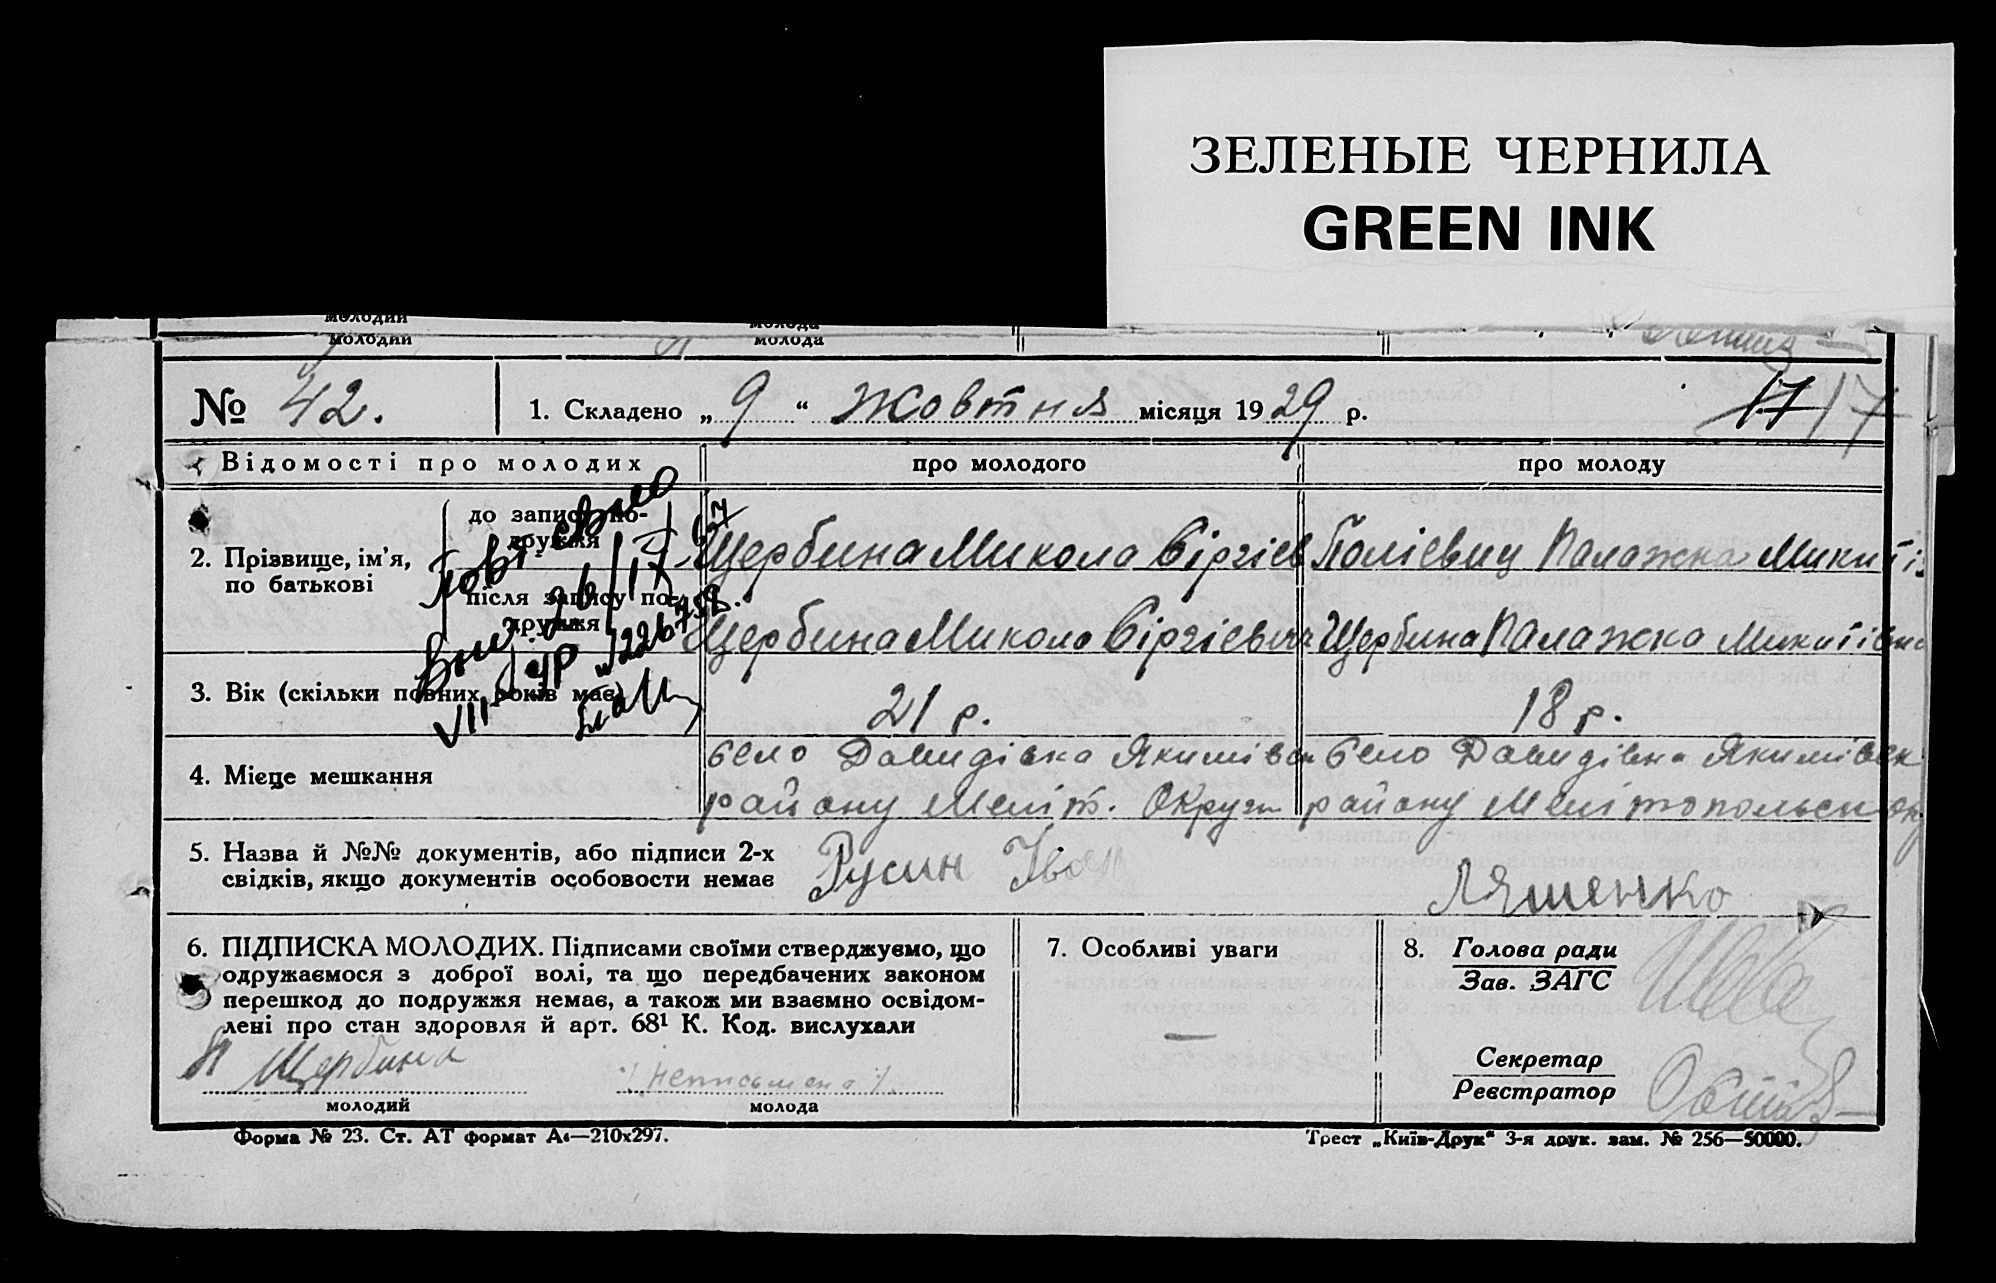 ЗЕЛЕНЫЕ ЧЕРНИЛА
GREEN INK
молодий
молода
молодий
молода
№ 42.
1. Складено „ 9 “ жовтня місяця 1929 р.
17 17
Відомості про молодих
про молодого
про молоду
2. Прізвище, ім’я, по батькові
до запису по-
дружжя
Щербина Микола Сіргієв
Полієвиц Палажка Микиті
після запису по-
дружжя
Щербина Микола Сіргієвич
Щербина Палажка Микитівна
Повт. св-во
26/IX
VII-
№226758
3. Вік (скільки повних років має)
21 р.
18 р.
4. Місце мешкання
село Давидівка Якимівск
району Меліт. Округи
село Давидівка Якимівск
району Мелітопольськ окр
5. Назва й №№ документів, або підписи 2-х
свідків, якщо документів особовости немає
Русин Іван
Ляшенко
6. ПІДПИСКА МОЛОДИХ. Підписами своїми стверджуємо, що
одружаємося з доброї волі, та що передбачених законом
перешкод до подружжя немає, а також ми взаємно освідом-
лені про стан здоровля й арт. 68¹ К. Код. вислухали
Щербина
молодий
/неписьмена/
молода
7. Особливі уваги
—
8. Голова ради
Зав. ЗАГС
Секретар
Реєстратор
Форма № 23. Ст. АТ формат А₄—210х297.
Трест „Київ-Друк“ 3-я друк. зам. № 256—50000.